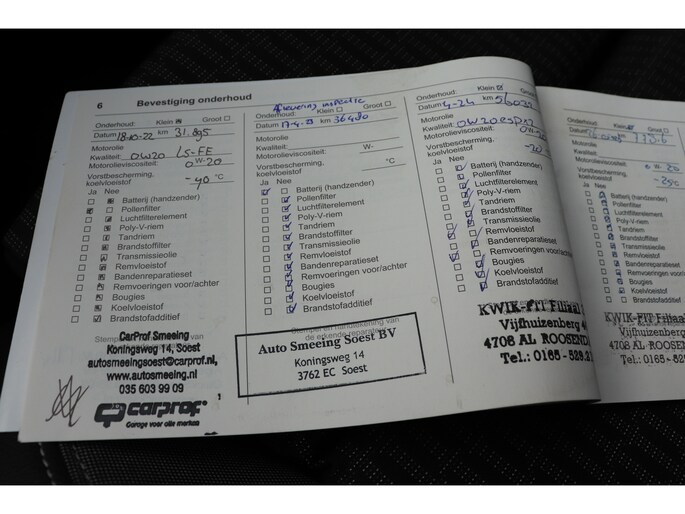 6 Bevestiging onderhoud
Onderhoud: Klein Groot
Datum 18-10-22 km 31.895
Motorolie
Kwaliteit: 0W20 LS-FE
Motorolieviscositeit: 0W-20
Vorstbescherming,
koelvloeistof -40 °C
Ja Nee
Batterij (handzender)
Pollenfilter
Luchtfilterelement
Poly-V-riem
Tandriem
Brandstoffilter
Transmissieolie
Remvloeistof
Bandenreparatieset
Remvoeringen voor/achter
Bougies
Koelvloeistof
Brandstofadditief
CarProf Smeeing
Koningsweg 14, Soest
autosmeeingsoest@carprof.nl,
www.autosmeeing.nl
035 603 99 09
carprof
Garage voor alle merken
1
Aflevering inspectie
Onderhoud: Klein Groot
Datum 17-4-23 km 36480
Motorolie
Kwaliteit:
Motorolieviscositeit: W-
Vorstbescherming,
koelvloeistof °C
Ja Nee
Batterij (handzender)
Pollenfilter
Luchtfilterelement
Poly-V-riem
Tandriem
Brandstoffilter
Transmissieolie
Remvloeistof
Bandenreparatieset
Remvoeringen voor/achter
Bougies
Koelvloeistof
Brandstofadditief
Stempel en handtekening van
de erkende reparateur
Auto Smeeing Soest BV
Koningsweg 14
3762 EC Soest
Onderhoud: Klein Groot
Datum 4-24 km
Motorolie
Kwaliteit:
Motorolieviscositeit:
Vorstbescherming,
koelvloeistof
Ja Nee
Batterij (handzender)
Pollenfilter
Luchtfilterelement
Poly-V-riem
Tandriem
Brandstoffilter
Transmissieolie
Remvloeistof
Bandenreparatieset
Remvoeringen voor/achter
Bougies
Koelvloeistof
Brandstofadditief
KWIK-FIT Filiaal
Vijfhuizenberg
4708 AL ROOSEND
Tel.: 0165 - 529.
Onderhoud: Klein Groot
Motorolie
Kwaliteit:
Motorolieviscositeit:
Vorstbescherming,
koelvloeistof
Ja Nee
Batterij (handzender)
Pollenfilter
Luchtfilterelement
Poly-V-riem
Tandriem
Brandstoffilter
Transmissieolie
Remvloeistof
Bandenreparatieset
Remvoeringen voor/achter
Bougies
Koelvloeistof
Brandstofadditief
KWIK-FIT Filiaal
Vijfhuizenberg
4708 AL ROOSEN
Tel.: 0165 - 528